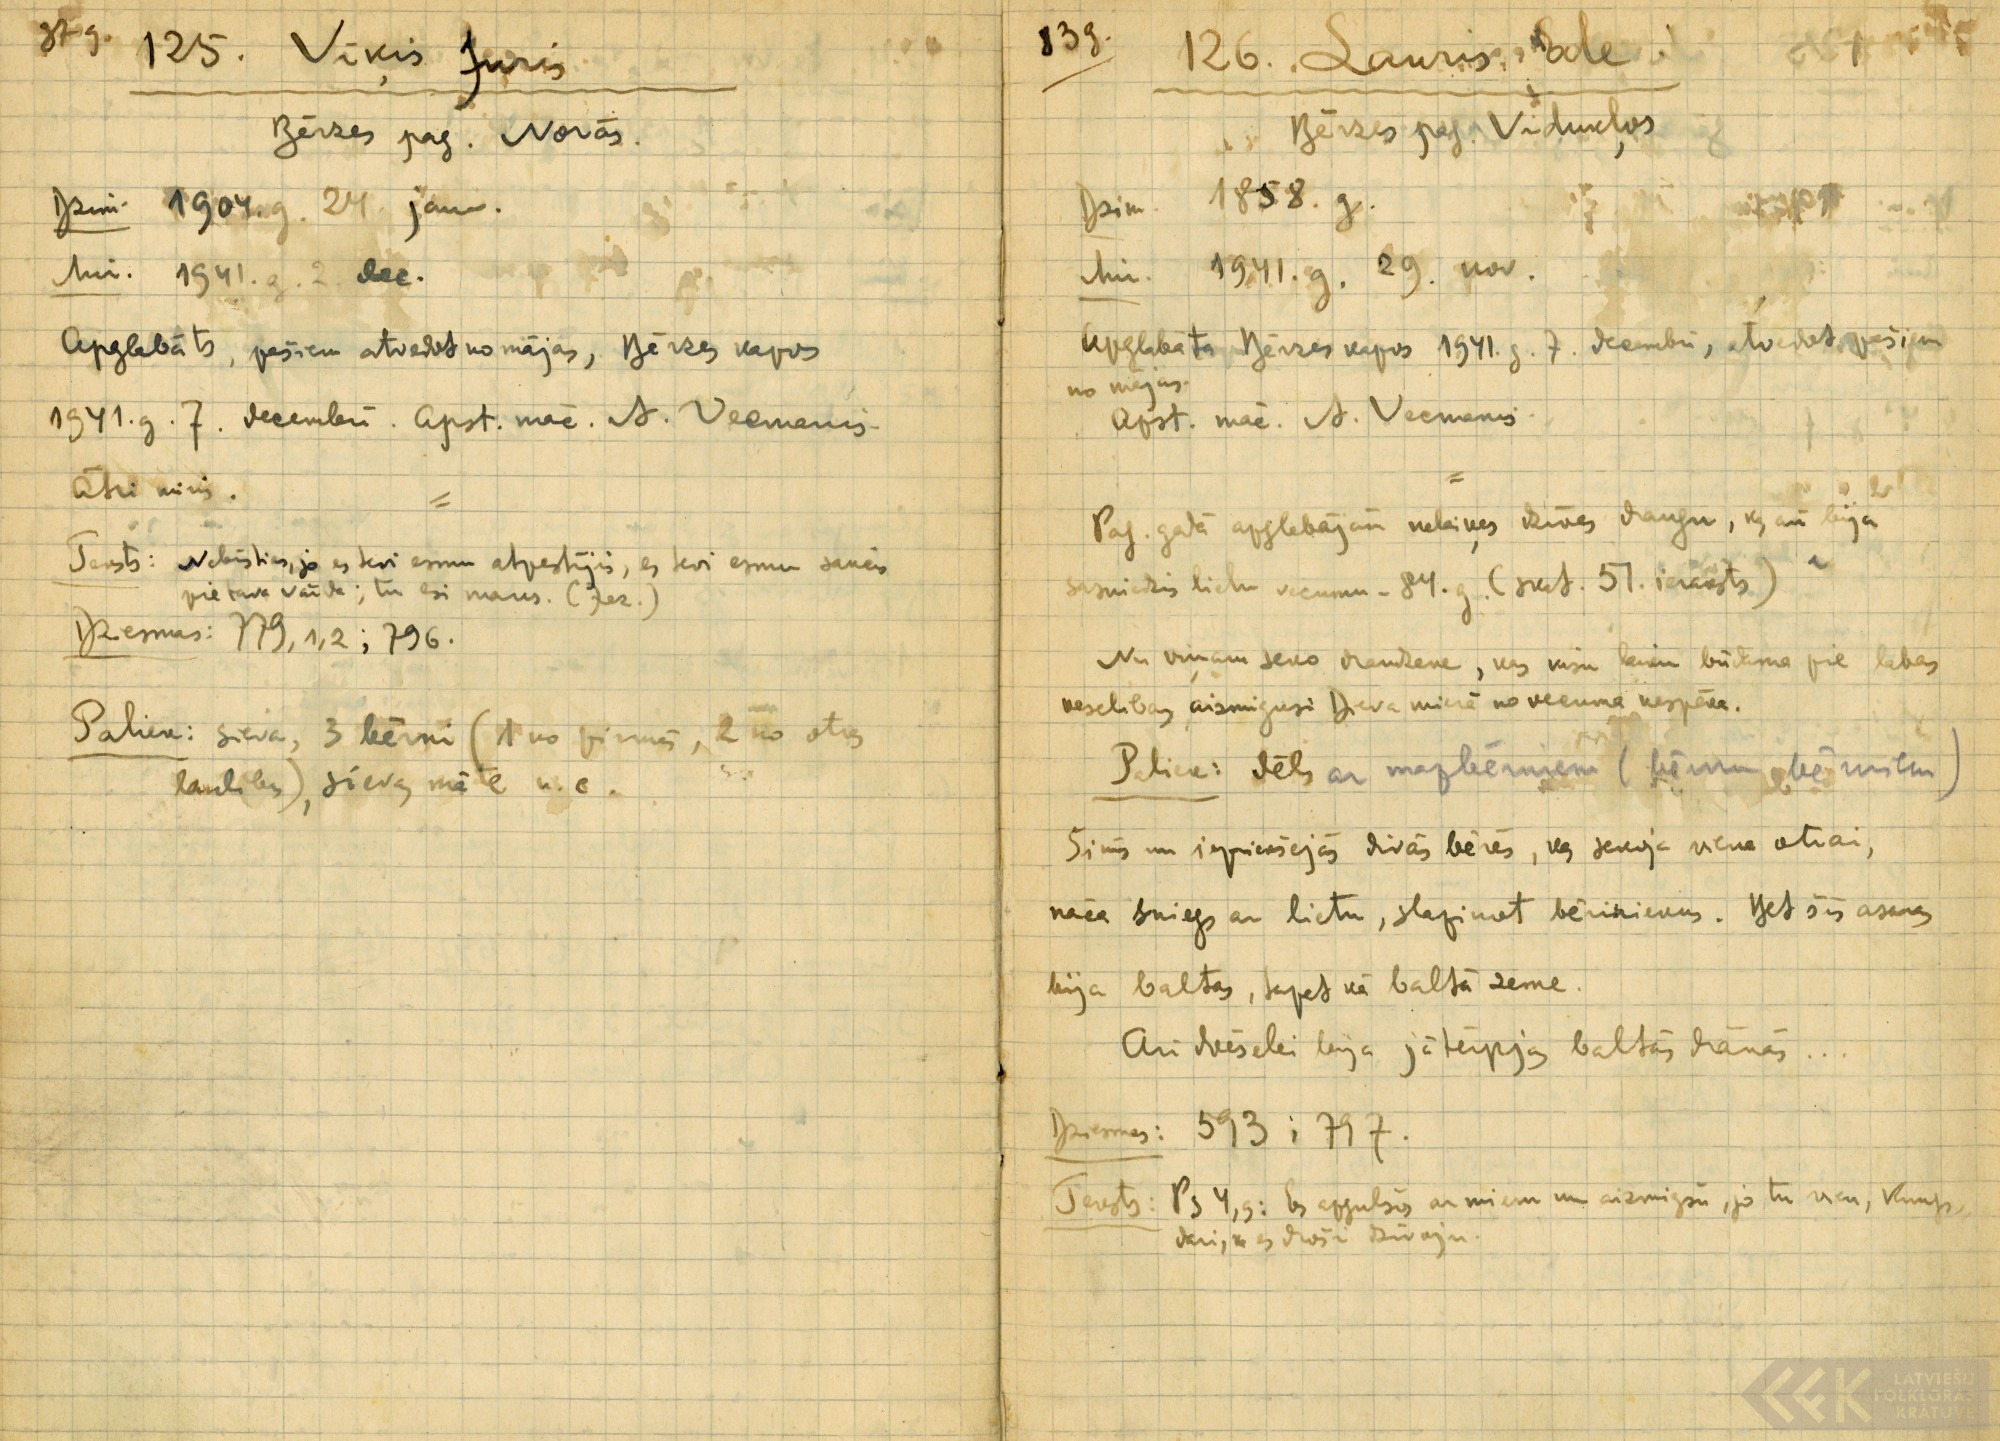 37 g.
125. Vīķis Juris
Bērzes pag. Norās.
Dzim. 1904. g. 24. janv.
Mir. 1941. g. 2. dec.
Apglabāts, pašiem atvedot no mājas, Bērzes kapos
1941. g. 7. decembrī. Apst. māc. A. Vecmanis.
Ātri miris.
=
Teksts: Nebīsties, jo es tevi esmu atpestījis, es tevi esmu saucis
pie tava vārda; tu esi mans. (Jez.)
Dziesmas: 779, 1,2; 796.
Paliek: sieva, 3 bērni (1 no pirmās, 2 no otras
laulības), sievas māte u. c.
83 g.
126. Lauris, Ede
Bērzes pag. Vidukļos
Dzim. 1858. g.
Mir. 1941. g. 29. nov.
Apglabāta Bērzes kapos 1941. g. 7. decembrī, atvedot pašiem
no mājas.
Apst. māc. A. Vecmanis.
=
Pag. gadā apglabājām nelaiķes dzīves draugu, kas arī bija
sasniedzis lielu vecumu - 84. g. (skat. 51. ieraksts)
Nu viņam seko draudzene, kas visu laiku būdama pie labas
veselības, aizmigusi Dieva mierā no vecuma nespēka.
Paliek: dēls ar mazbērniem (bērnu bērniem)
Šinīs un iepriekšējās divās bērēs, kas sekoja viena otrai,
nāca sniegs ar lietu, slapinot bēriniekus. Bet šīs asaras
bija baltas, tāpat kā baltā zeme.
Arī dvēselei bija jātērpjas baltās drānās...
Dziesmas: 593; 797.
Teksts: Ps 4,9: Es apgulšos ar mieru un aizmigšu, jo tu vien, Kungs,
dari, ka es droši dzīvoju.
LATVIEŠU
FOLKLORAS
KRĀTUVE